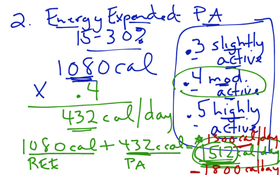 2. Energy Expended PA
15-30%
1080 cal
X .4
432 cal/day
1080 cal + 432 cal
REE PA
.3 slightly
active
.4 mod
active
.5 highly
active
1200 cal/day
1512 cal/day
- 1800 cal/day